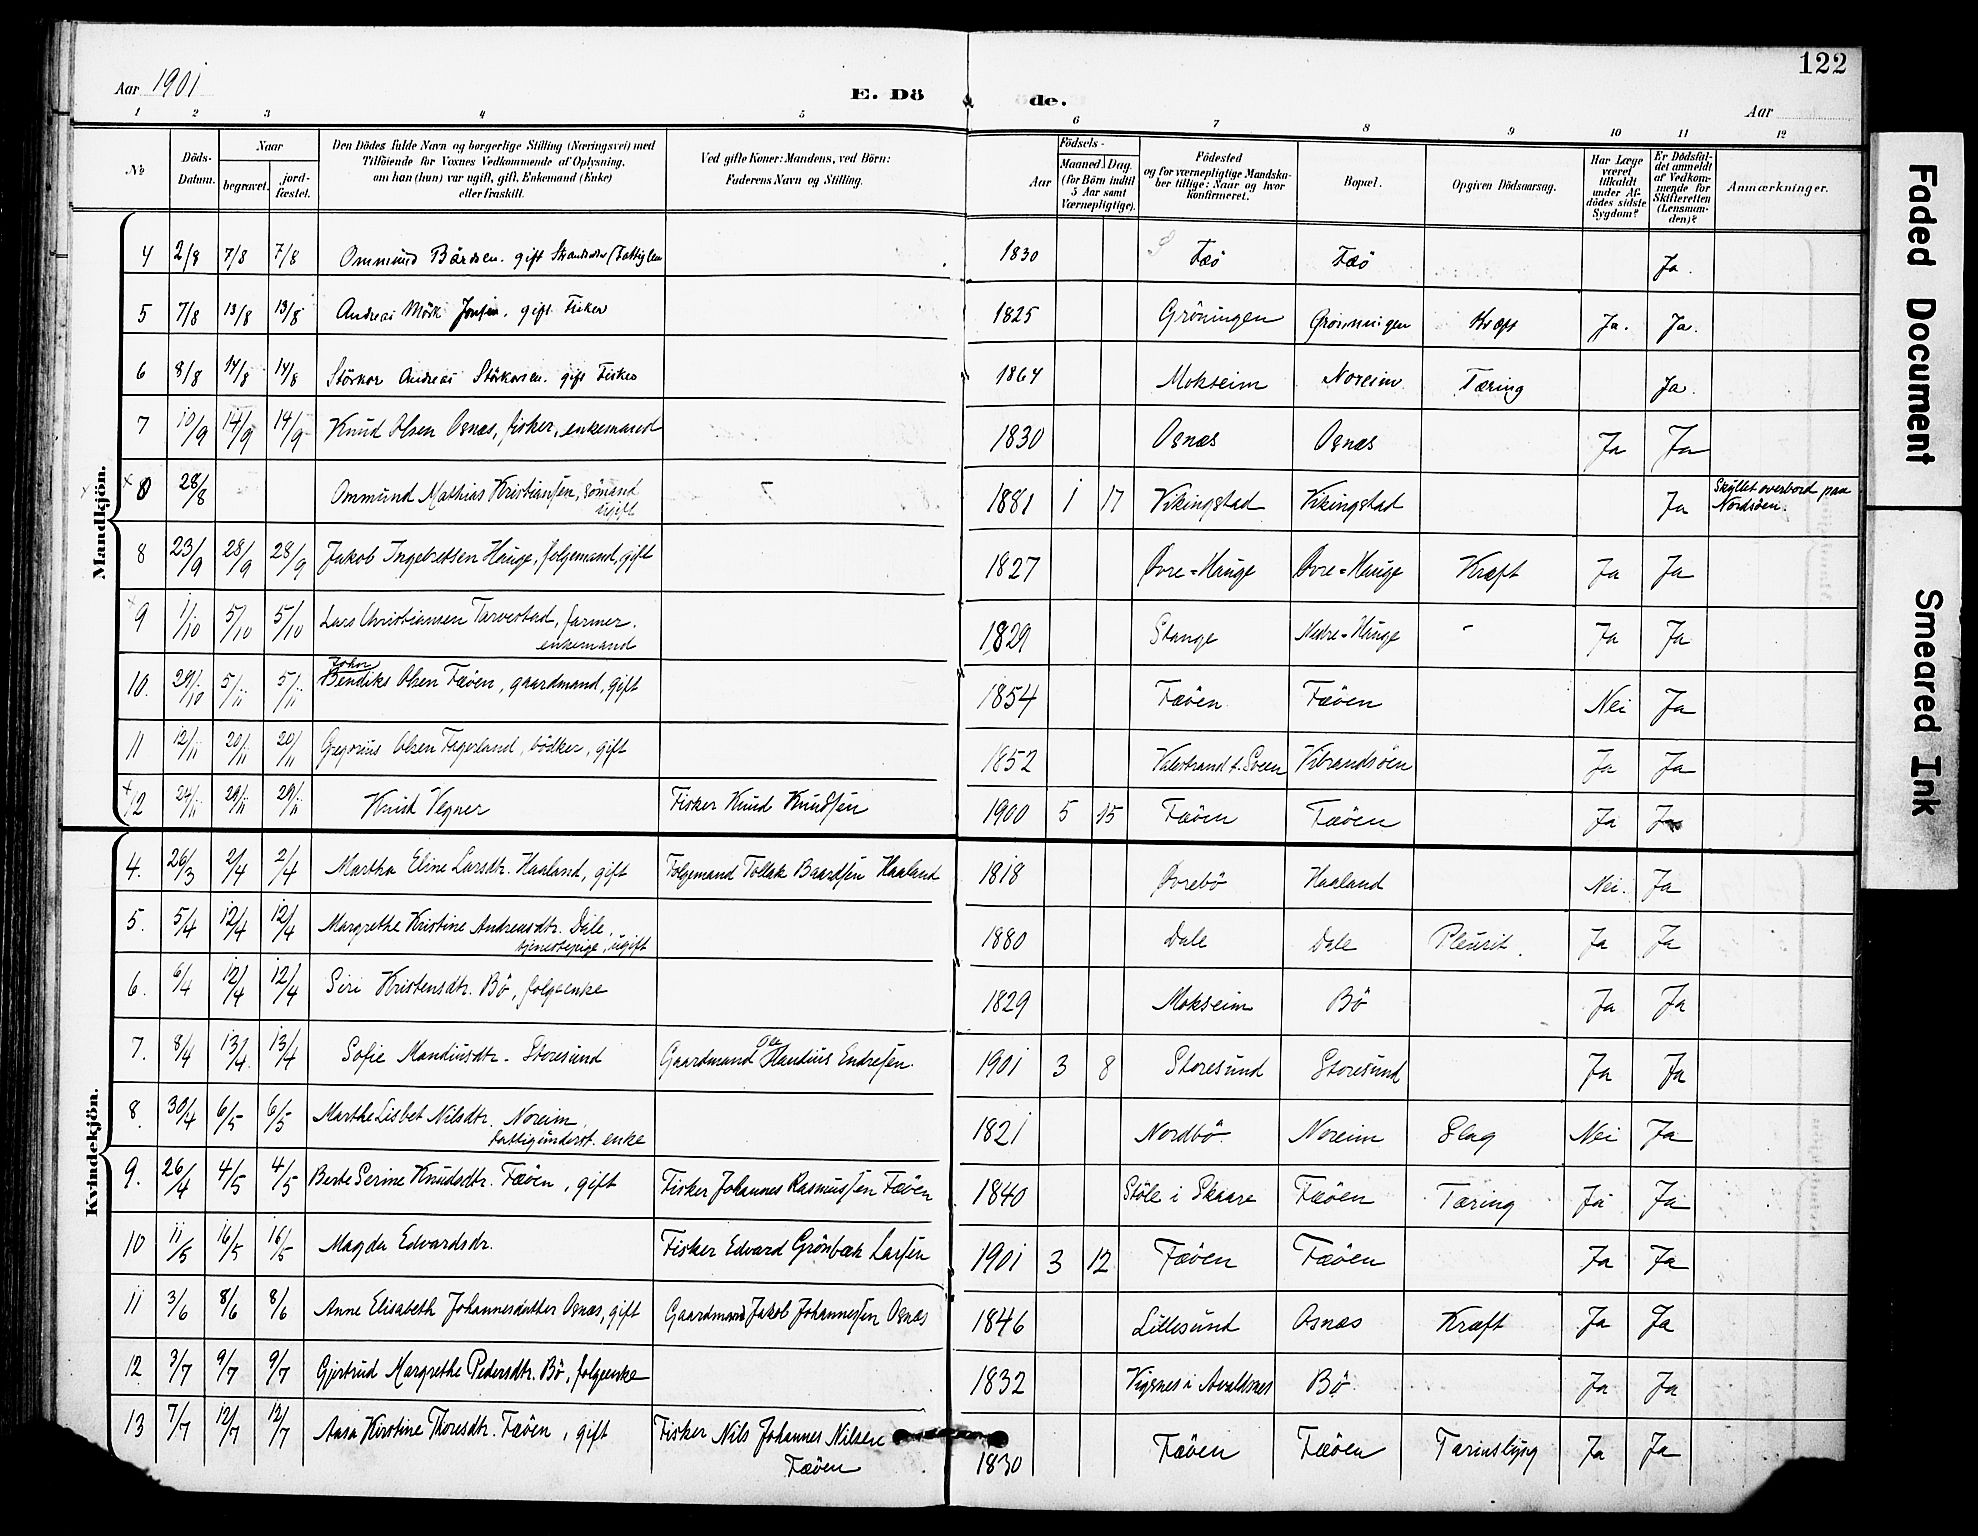 122
Aar 1901
E. Dö
de.
Aar
1 2 3 4 5 6 7 8 9 10 11 12
No
Döds-
Datum.
Naar
begravet.
jord-
fæstet.
Den Dödes fulde Navn og borgerlige Stilling (Næringsvei) med
Tilföiende for Voxnes Vedkommende af Oplysning,
om han (hun) var ugift, gift, Enkemand (Enke)
eller fraskilt.
Ved gifte Koner: Mandens, ved Börn:
Faderens Navn og Stilling.
Födsels-
Aar
Maaned. Dag.
(for Börn indtil
5 Aar samt
Værnepligtige).
Födested
og for værnepligtige Mandska-
ber tillige: Naar og hvor
konfirmeret.
Bopæl.
Opgiven Dödsaarsag.
Har Læge
været
tilkaldt
under Af-
dödes sidste
Sygdom?
Er Dödsfal-
det anmeldt
af Vedkom-
mende for
Skifteretten
(Lensman-
den)?
Anmærkninger.
Mandkjön.
4 2/8 7/8 7/8 Ommund Bårdsen. gift 1830 Fæö Fæö Ja.
5 7/8 13/8 13/8 Andreas Mörk Jonsen. gift Fisker 1825 Gröningen Grönningen Kræft Ja. Ja.
6 8/8 14/8 14/8 Störkor Andreas Störkorsen. gift Fisker 1864 Mokseim Noreim Tæring Ja.
7 10/9 14/9 14/9 Knud Olsen Osnæs, fisker, enkemand 1830 Osnæs Osnæs Ja Ja
8 28/8 Ommund Mathias Kristiansen, sömand
ugift
1881 1 17 Vikingstad Vikingstad Ja Skyllet overbord paa
Nordsöen.
8 23/9 28/9 28/9 Jakob Ingebretsen Hauge, folgemand, gift 1827 Övre=Hauge Övre=Hauge Kræft Ja Ja
9 1/10 5/10 5/10 Lars Christiansen Tarvestad, farmer.
enkemand
1829 Stange Nedre=Hauge " Ja Ja
John
10. 29/10 5/11 5/11 Bendiks Olsen Fæöen, gaardmand, gift 1854 Fæöen Fæöen Nei Ja
11 12/11 20/11 20/11 Gregorius Olsen Fagerland, bödker, gift 1852 Valestrand f. Sveen Vibrandsöen Ja Ja
12 24/11 29/11 29/11 Knut Vegner Fisker Knud Knudsen 1900 5 15 Fæöen Fæöen Ja Ja
Kvindekjön.
4. 26/3 2/4 2/4 Martha Eline Larsdtr. Haaland, gift Folgemand Tollak Baardsen Haaland 1818 Övrebö Haaland Nei. Ja
5. 5/4 12/4 12/4 Margrethe Kristine Andreasdtr. Dale,
tjenestepige, ugift
1880 Dale Dale Pleurit. Ja Ja
6. 6/4 12/4 12/4 Siri Kristensdtr. Bö, folgeenke 1829 Mokseim Bö Ja Ja
7. 8/4 13/4 13/4 Sofie Mandiusdtr. Storesund Gaardmand Mandius Endresen. 1901 3 8 Storesund Storesund Ja Ja
8. 30/4 6/5 6/5 Marthe Lisbet Nilsdtr. Noreim,
fattigunderst. enke
1821 Nordbö. Noreim Slag Nei Ja
9. 26/4 4/5 4/5 Berte Serine Knudsdtr. Fæöen, gift Fisker Johannes Rasmussen Fæöen 1840 Stöle i Skaare Fæöen Tæring Ja Ja
10 11/5 16/5 16/5 Magda Edvardsdr. Fisker Edvard Grönbæk Larsen 1901 3 12 Fæöen Fæöen Ja Ja
11 3/6 8/6 8/6 Anne Elisabeth Johannesdatter Osnæs, gift Gaardmand Jakob Johannessen Osnæs 1846 Lillesund Osnæs Kræft Ja Ja
12 3/7 9/7 9/7 Gjertrud Margrethe Pedersdtr. Bö, folgeenke 1832 Vigsnes i Avaldsnes Bö. Ja Ja
13 7/7 12/7 12/7 Aasa Kirstine Thoresdtr. Fæöen, gift Fisker Nils Johannes Nilsen
Fæöen
1830 Fæöen Fæöen Ja Ja
Faded Document
Smeared Ink